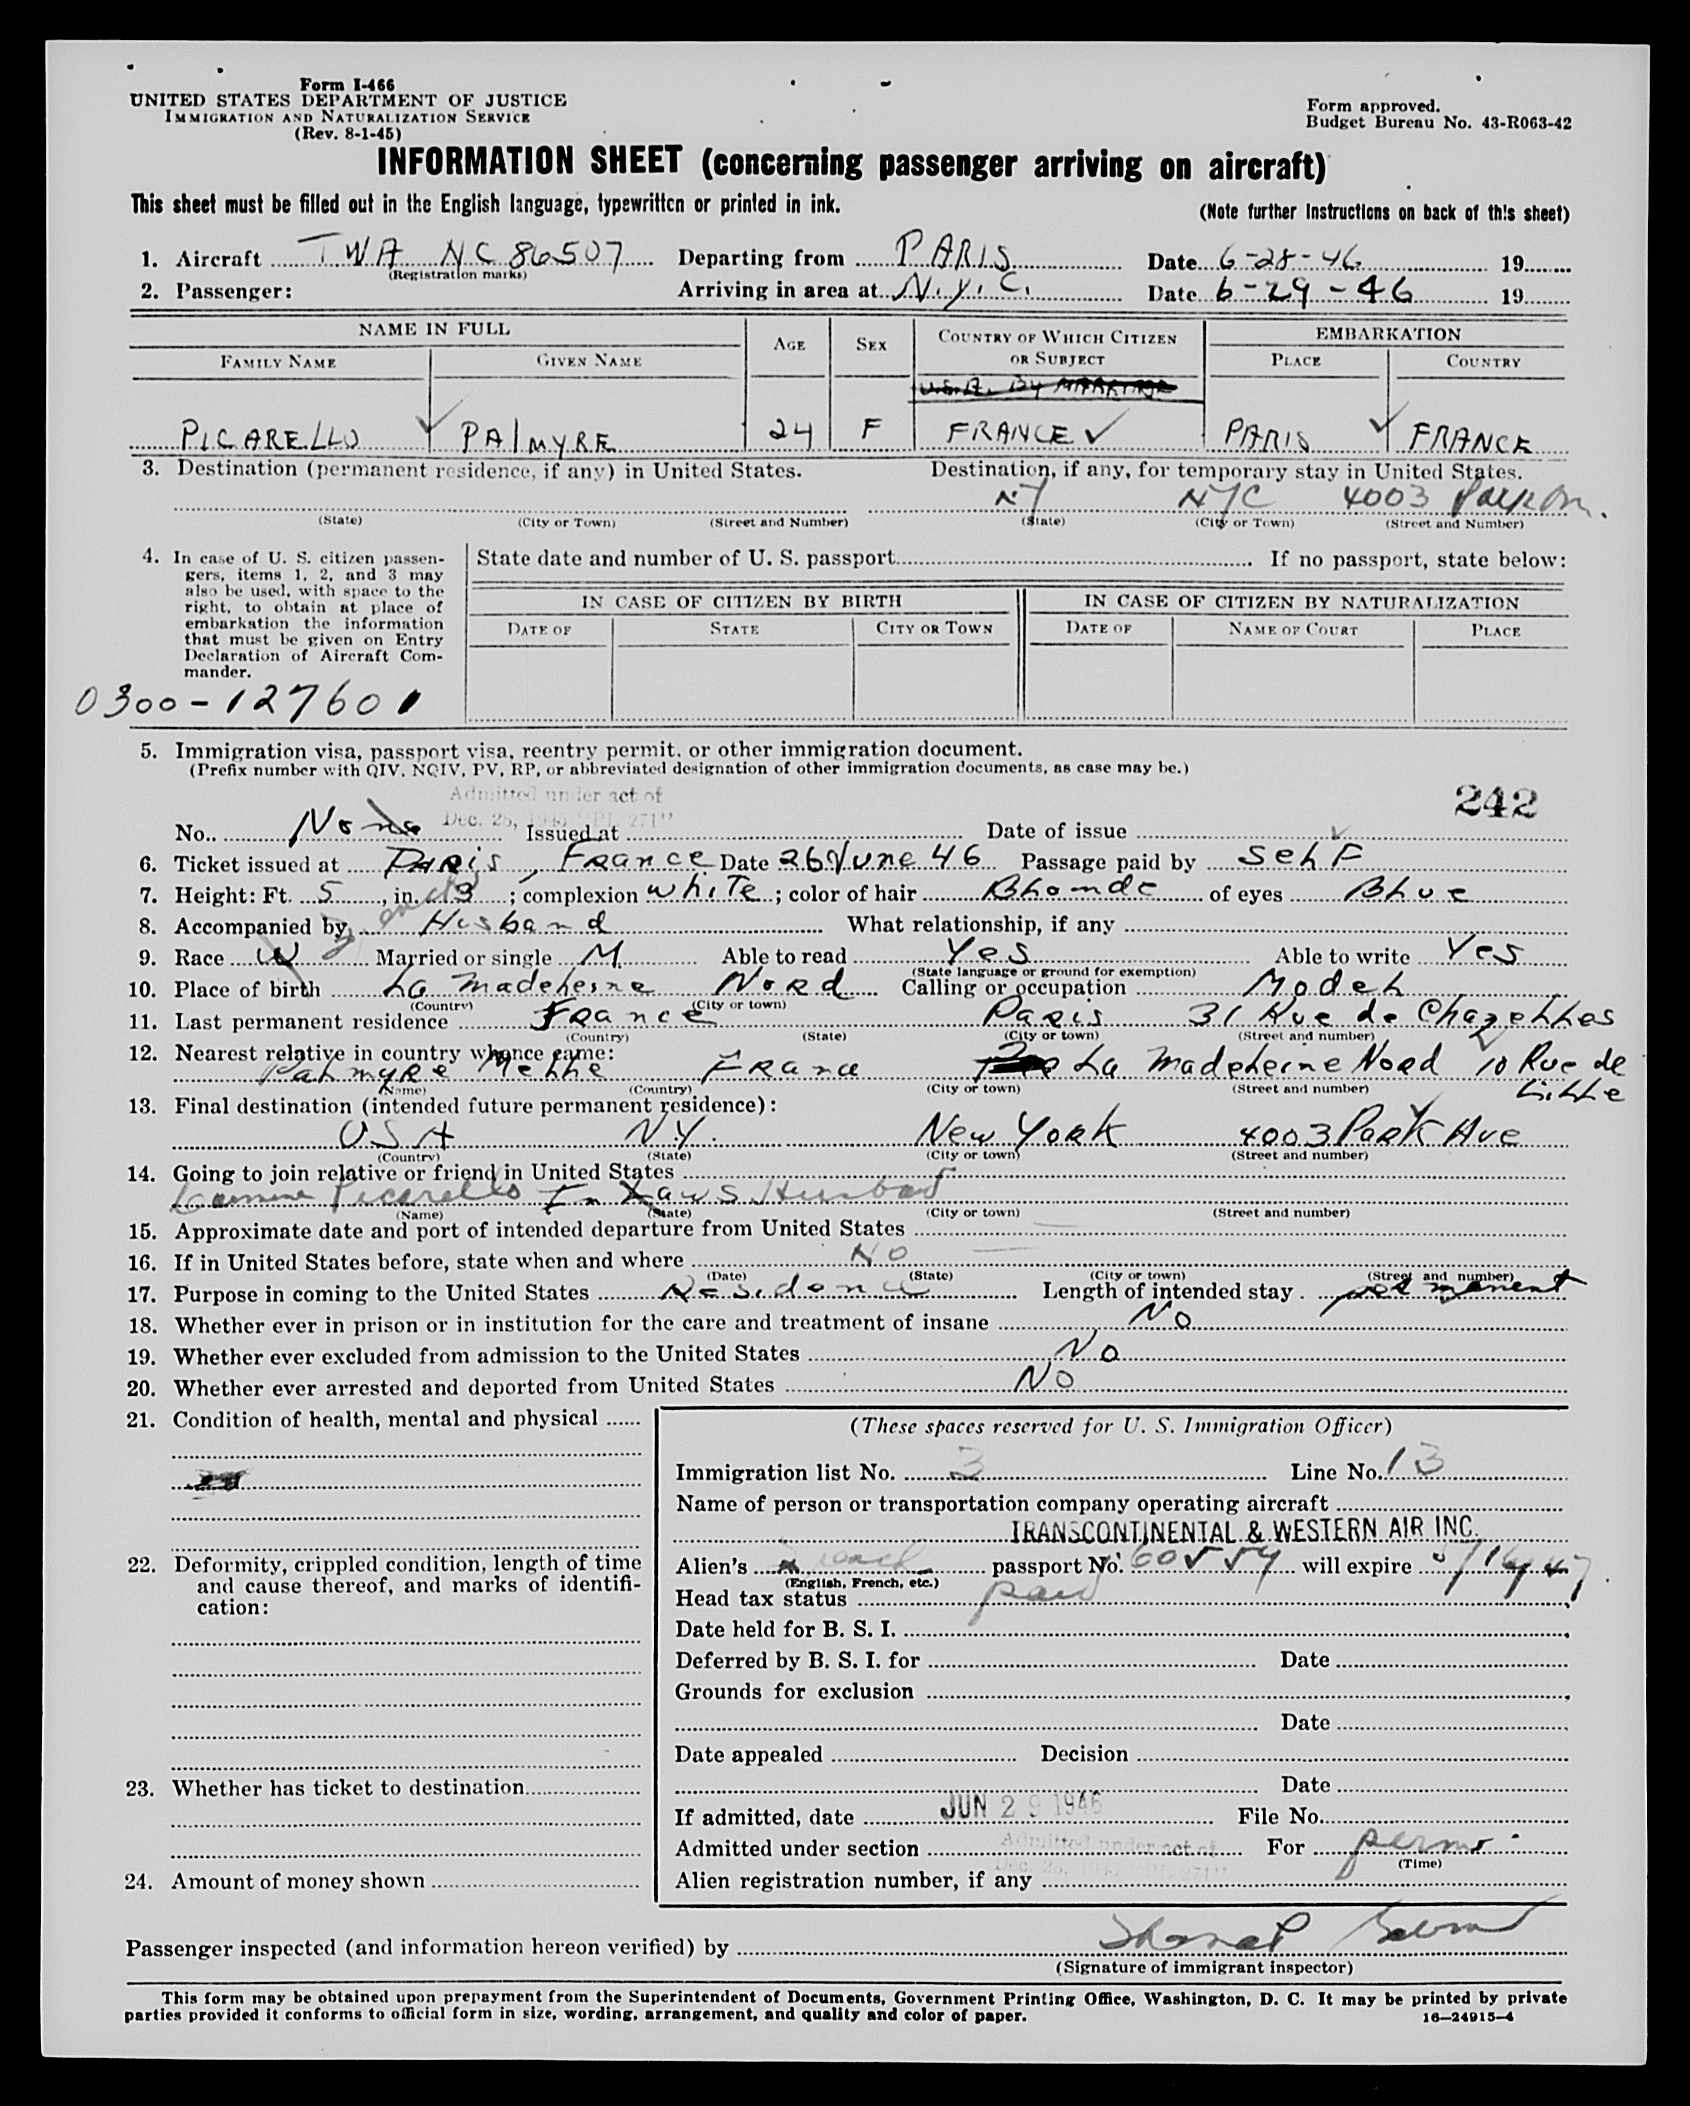 Form I-466
UNITED STATES DEPARTMENT OF JUSTICE
IMMIGRATION AND NATURALIZATION SERVICE
(Rev. 8-1-45)
Form approved.
Budget Bureau No. 43-R063-42
INFORMATION SHEET (concerning passenger arriving on aircraft)
This sheet must be filled out in the English language, typewritten or printed in ink.
(Note further instructions on back of this sheet)
1. Aircraft TWA NC 86507 Departing from PARIS Date 6-28-46 19
(Registration marks)
2. Passenger: Arriving in area at N.Y.C. Date 6-29-46 19
NAME IN FULL AGE SEX COUNTRY OF WHICH CITIZEN OR SUBJECT EMBARKATION
FAMILY NAME GIVEN NAME PLACE COUNTRY
U.S.A. By MARRIAGE
PICARELLO PALMYRE 24 F FRANCE PARIS FRANCE
3. Destination (permanent residence, if any) in United States. Destination, if any, for temporary stay in United States.
NY NYC 4003
(State) (City or Town) (Street and Number) (State) (City or Town) (Street and Number)
4. In case of U. S. citizen passengers, items 1, 2, and 3 may also be used, with space to the right, to obtain at place of embarkation the information that must be given on Entry Declaration of Aircraft Commander.
State date and number of U. S. passport If no passport, state below:
IN CASE OF CITIZEN BY BIRTH IN CASE OF CITIZEN BY NATURALIZATION
DATE OF STATE CITY OR TOWN DATE OF NAME OF COURT PLACE
0300-127601
5. Immigration visa, passport visa, reentry permit, or other immigration document.
(Prefix number with QIV, NQIV, PV, RP, or abbreviated designation of other immigration documents, as case may be.)
Admitted under act of
Dec. 28, 1945 "PL 271"
242
No. None Issued at Date of issue
6. Ticket issued at Paris, France Date 26 June 46 Passage paid by Self
7. Height: Ft. 5, in. 3; complexion white; color of hair Blonde of eyes Blue
8. Accompanied by Husband What relationship, if any
9. Race W Married or single M Able to read Yes Able to write Yes
(State language or ground for exemption)
10. Place of birth La Madeleine Nord Calling or occupation Model
(Country) (City or town)
11. Last permanent residence France Paris 31 Rue de Chazelles
(Country) (State) (City or town) (Street and number)
12. Nearest relative in country whence came:
Palmyre Melle France La Madeleine Nord 10 Rue de Lille
(Name) (Country) (City or town) (Street and number)
13. Final destination (intended future permanent residence):
USA N.Y. New York 4003 Park Ave
(Country) (State) (City or town) (Street and number)
14. Going to join relative or friend in United States
Picarello In Laws Husband
(Name) (State) (City or town) (Street and number)
15. Approximate date and port of intended departure from United States
16. If in United States before, state when and where No
(Date) (State) (City or town) (Street and number)
17. Purpose in coming to the United States Residence Length of intended stay permanent
18. Whether ever in prison or in institution for the care and treatment of insane No
19. Whether ever excluded from admission to the United States No
20. Whether ever arrested and deported from United States No
21. Condition of health, mental and physical
22. Deformity, crippled condition, length of time and cause thereof, and marks of identification:
23. Whether has ticket to destination
24. Amount of money shown
(These spaces reserved for U. S. Immigration Officer)
Immigration list No. 3 Line No. 13
Name of person or transportation company operating aircraft
TRANSCONTINENTAL & WESTERN AIR INC.
Alien's French passport No. will expire
(English, French, etc.)
Head tax status paid
Date held for B. S. I.
Deferred by B. S. I. for Date
Grounds for exclusion
Date
Date appealed Decision
Date
If admitted, date JUN 29 1946 File No.
Admitted under section Admitted under act of For perm
Dec. 28, 1945 "PL 271" (Time)
Alien registration number, if any
Passenger inspected (and information hereon verified) by
(Signature of immigrant inspector)
This form may be obtained upon prepayment from the Superintendent of Documents, Government Printing Office, Washington, D. C. It may be printed by private
parties provided it conforms to official form in size, wording, arrangement, and quality and color of paper.
16—24915-4